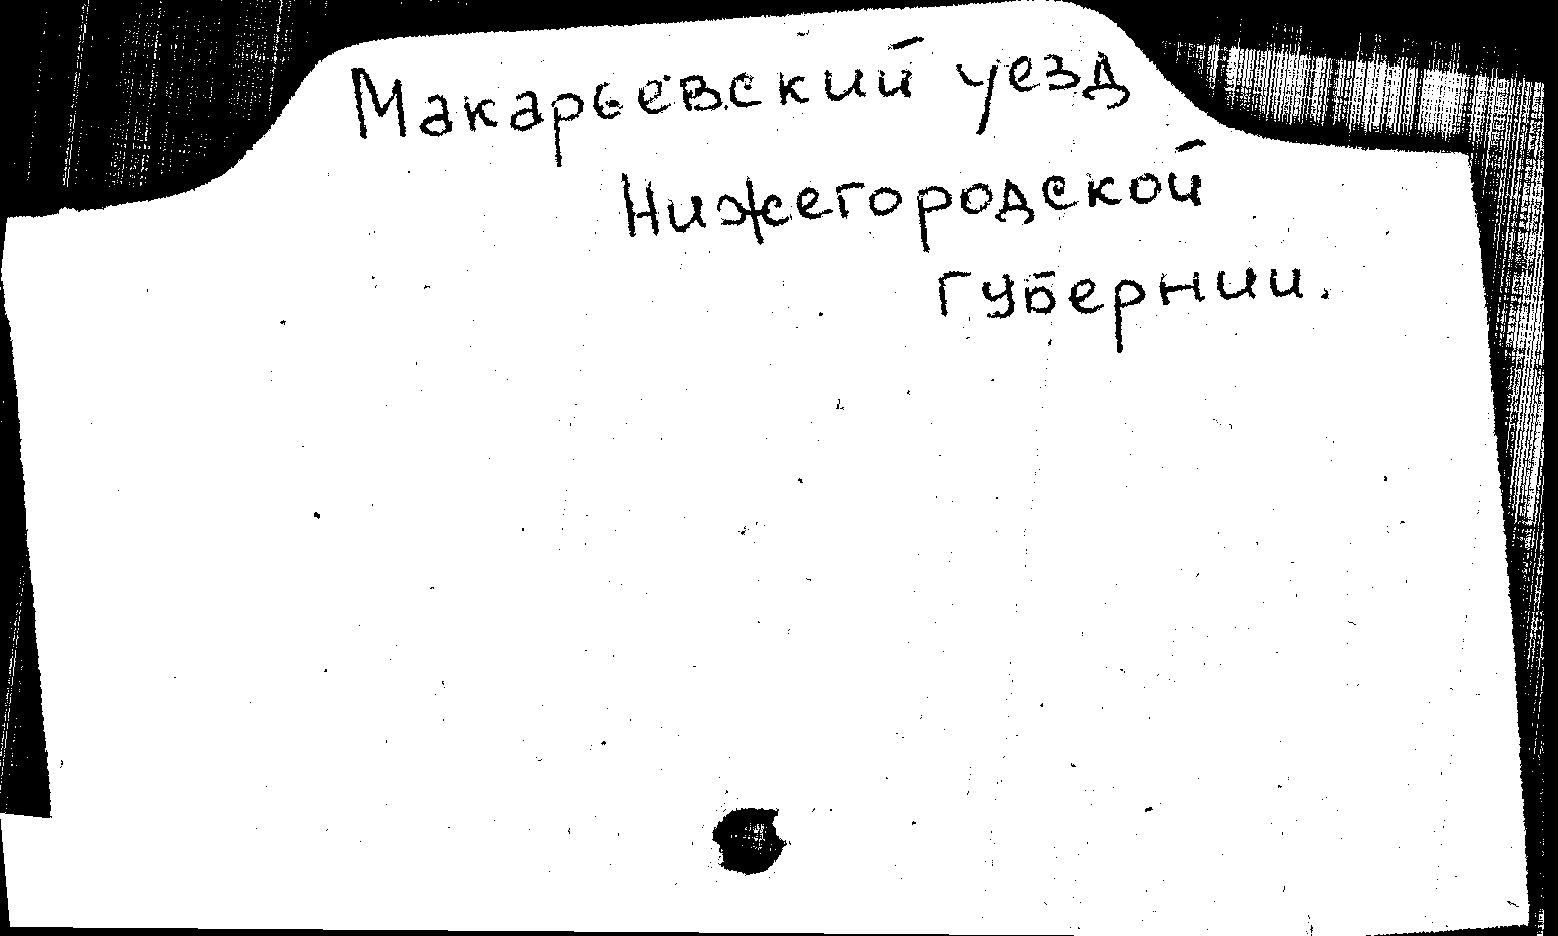 Макарьевский уезд
Нижегородской
губернии.